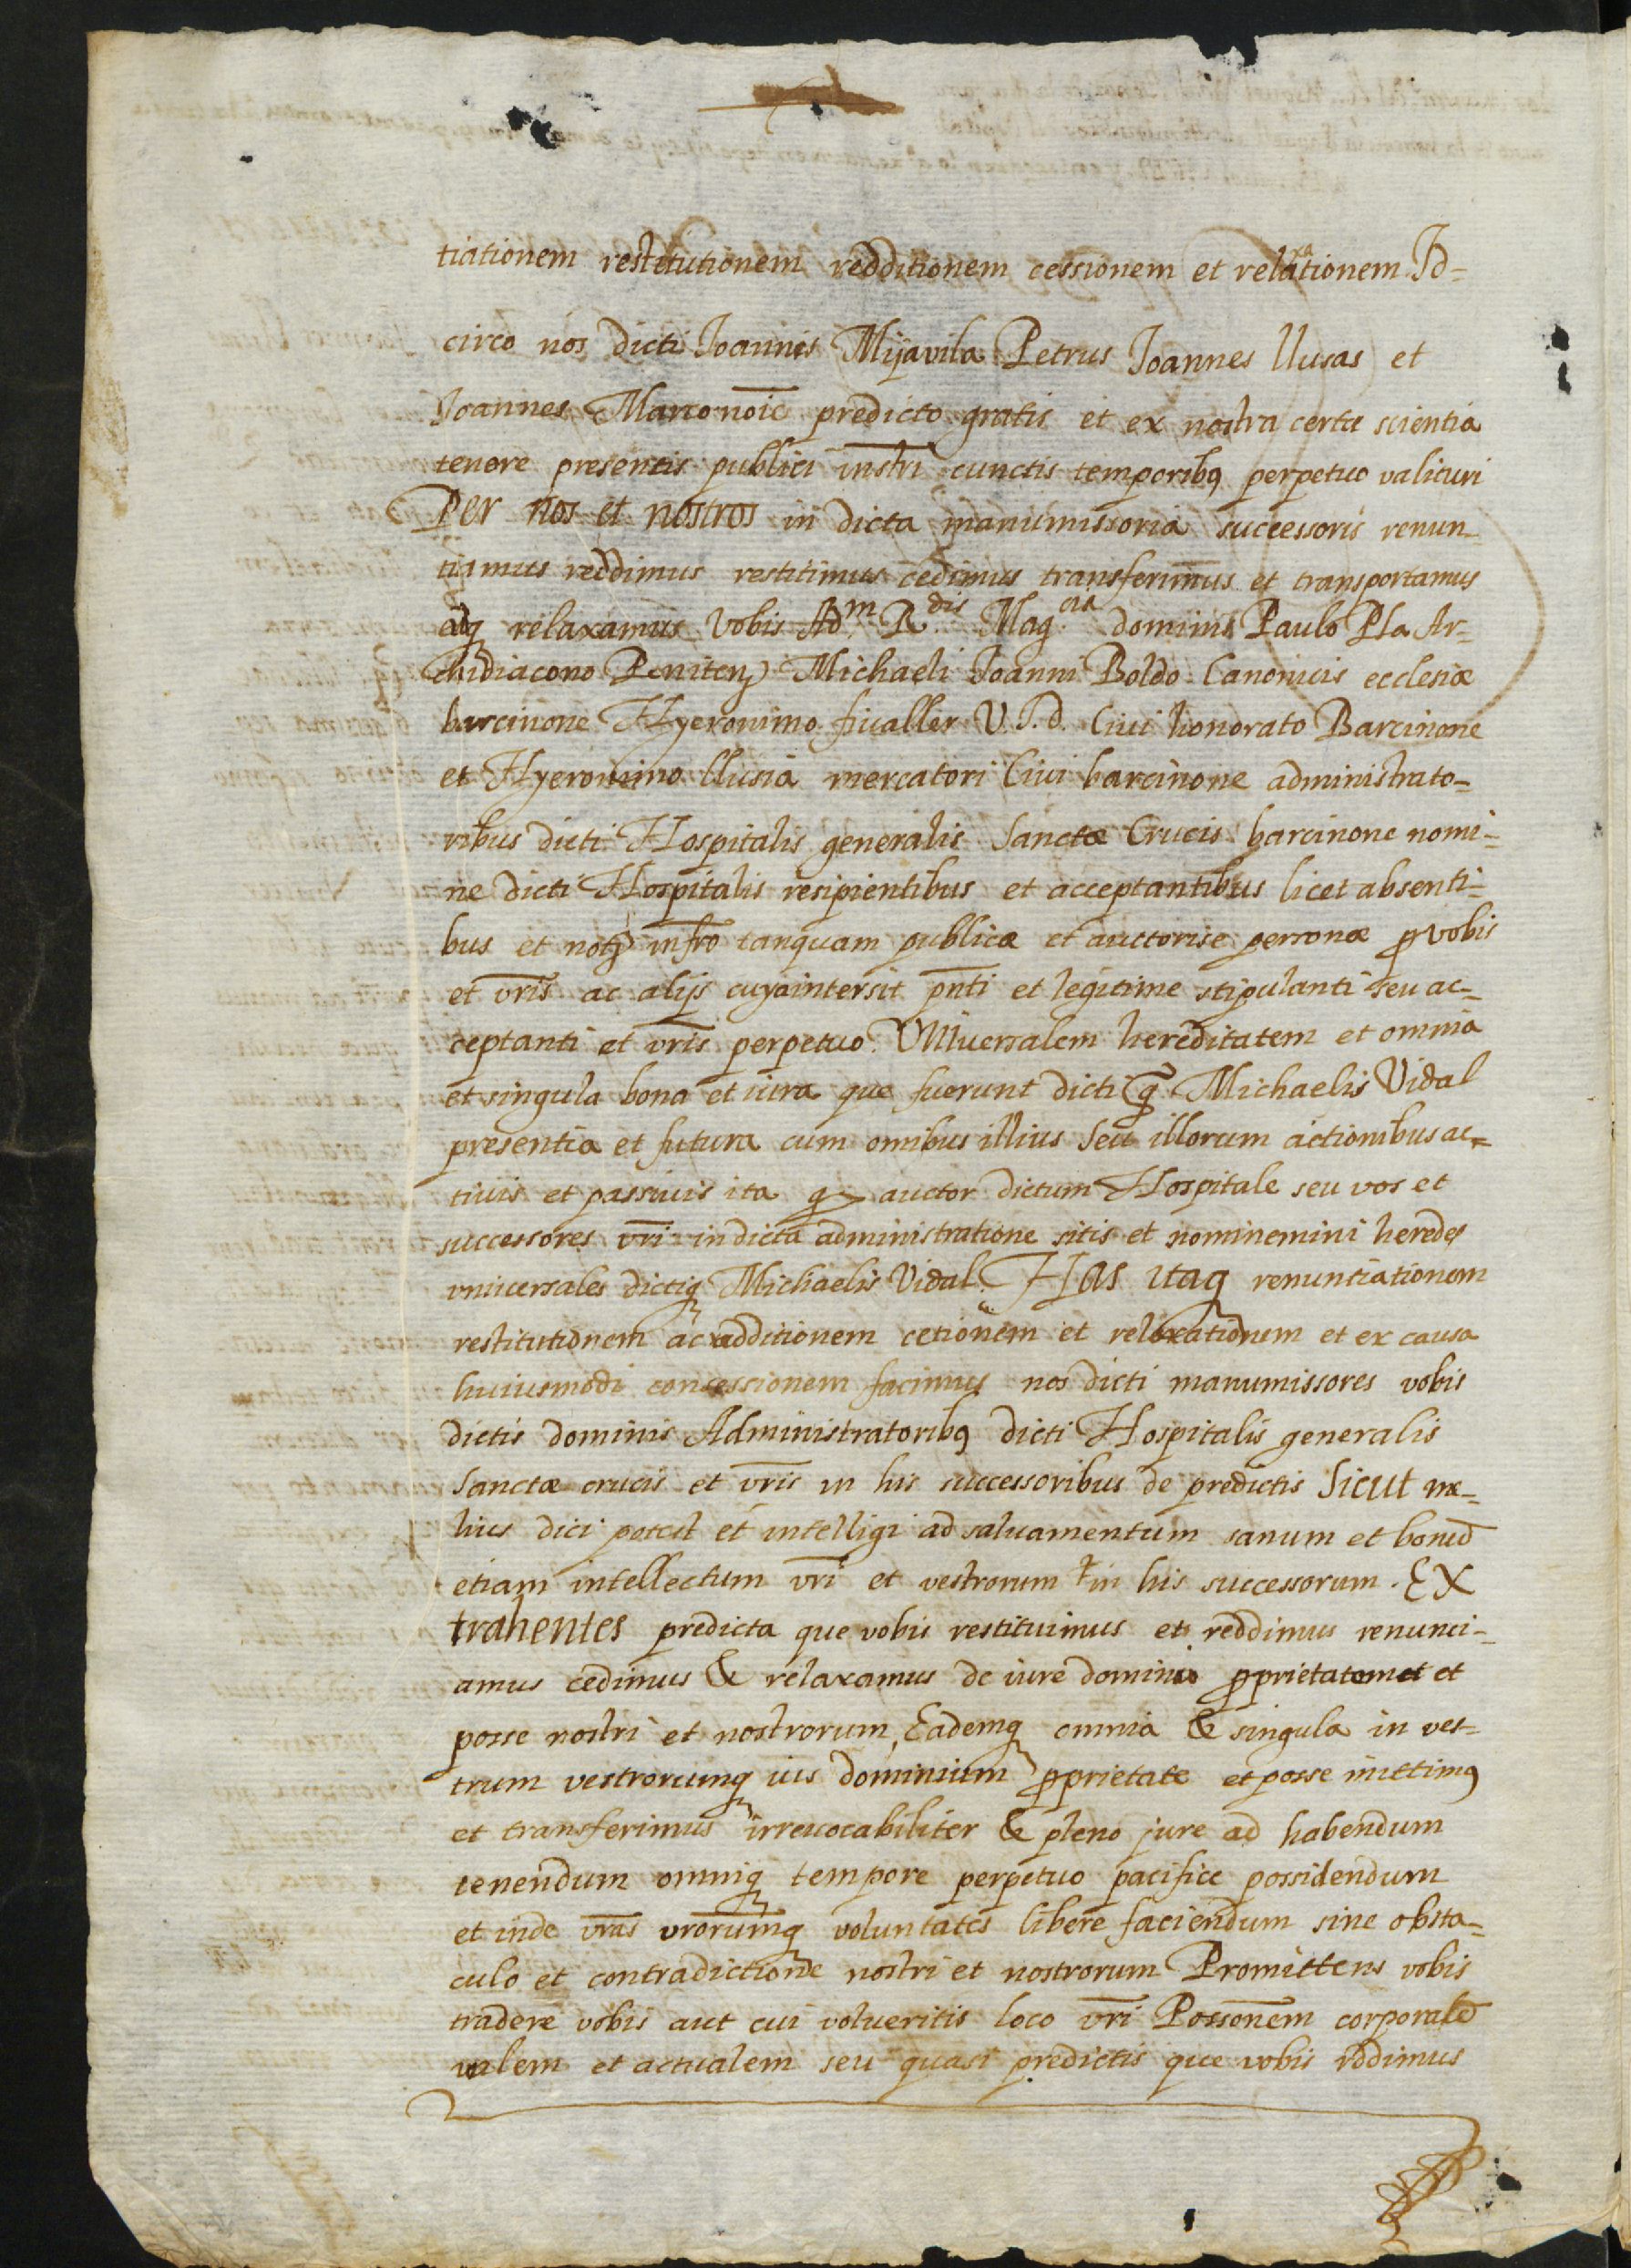 tiationem restitutionem redditionem cessionem et relaxationem Id=
circo nos dicti Joannis Mijavila Petrus Joannes llusas et
Joannes Marro noīe predicto gratis et ex nostra certa scientia
tenore presentis publici instri cunctis temporibꝰ perpetuo valituri
Per nos et nostros in dicta manumissoria successoris renun-
tiamus reddimus restitimus cedimus transferimus et transportamus
atq relaxamus Vobis Adm Rdis Magcis dominis Paulo Pla Ar-
chidiacono Peniten Michaeli Joanni Boldo Canonicis ecclesiæ
barcinone Hyeronimo fivaller V.J.d. Ciui honorato Barcinone
et Hyeronimo llusia mercatori Ciui barcinone administrato-
ribus dicti Hospitalis generalis Sanctæ Crucis barcinone nomi-
ne dicti Hospitalis resipientibus et acceptantibus licet absenti-
bus et notᵒ infro tanquam publicæ et auctorise personæ ꝓ vobis
et vr̄is ac alijs cuya intersit pn̄ti et legitime stipulanti seu ac-
ceptanti et vr̄is perpetuo. Vniuersalem hereditatem et omnia
et singula bona et iura que fuerunt dicti q̄ Michaelis Vidal
presentia et futura cum omibus illius seu illorum actionibus ac=
tiuis et passiuis ita ꝙ auctor dictum Hospitale seu vos et
successores vr̄i in dicta administratione sitis et nominemini heredes
vniuersales dictiq Michaelis Vidal. Has itaq renuntiationem
restitutionem ac redditionem cetionem et relaxationem et ex causa
huiusmodi concessionem facimus nos dicti manumissores vobis
dictis dominis Administratoribꝰ dicti Hospitalis generalis
Sanctæ crucis et vr̄is in his successoribus de predictis Sicut me-
lius dici potest et intelligi ad saluamentum sanum et bonū
etiam intellectum vr̄i et vestrorum in his successorum. Ex
trahentes predicta que vobis restituimus et reddimus renunci-
amus cedimus & relaxamus de iure dominio ꝓprietatem et et
posse nostri et nostrorum, Eademq omnia & singula in ves-
trum vestrorumq ius dominium ꝓprietate et posse mittimꝰ
et transferimus irreuocabiliter & pleno jure ad habendum
tenendum omniq tempore perpetuo pacifice possidendum
et inde vr̄as vr̄orumq voluntates libere faciendum sine obsta-
culo et contradictione nostri et nostrorum Promittens vobis
tradere vobis aut cui volueritis loco vr̄i Possōnem corporalē
valem et actualem seu quasi predictis que vobis rddimus